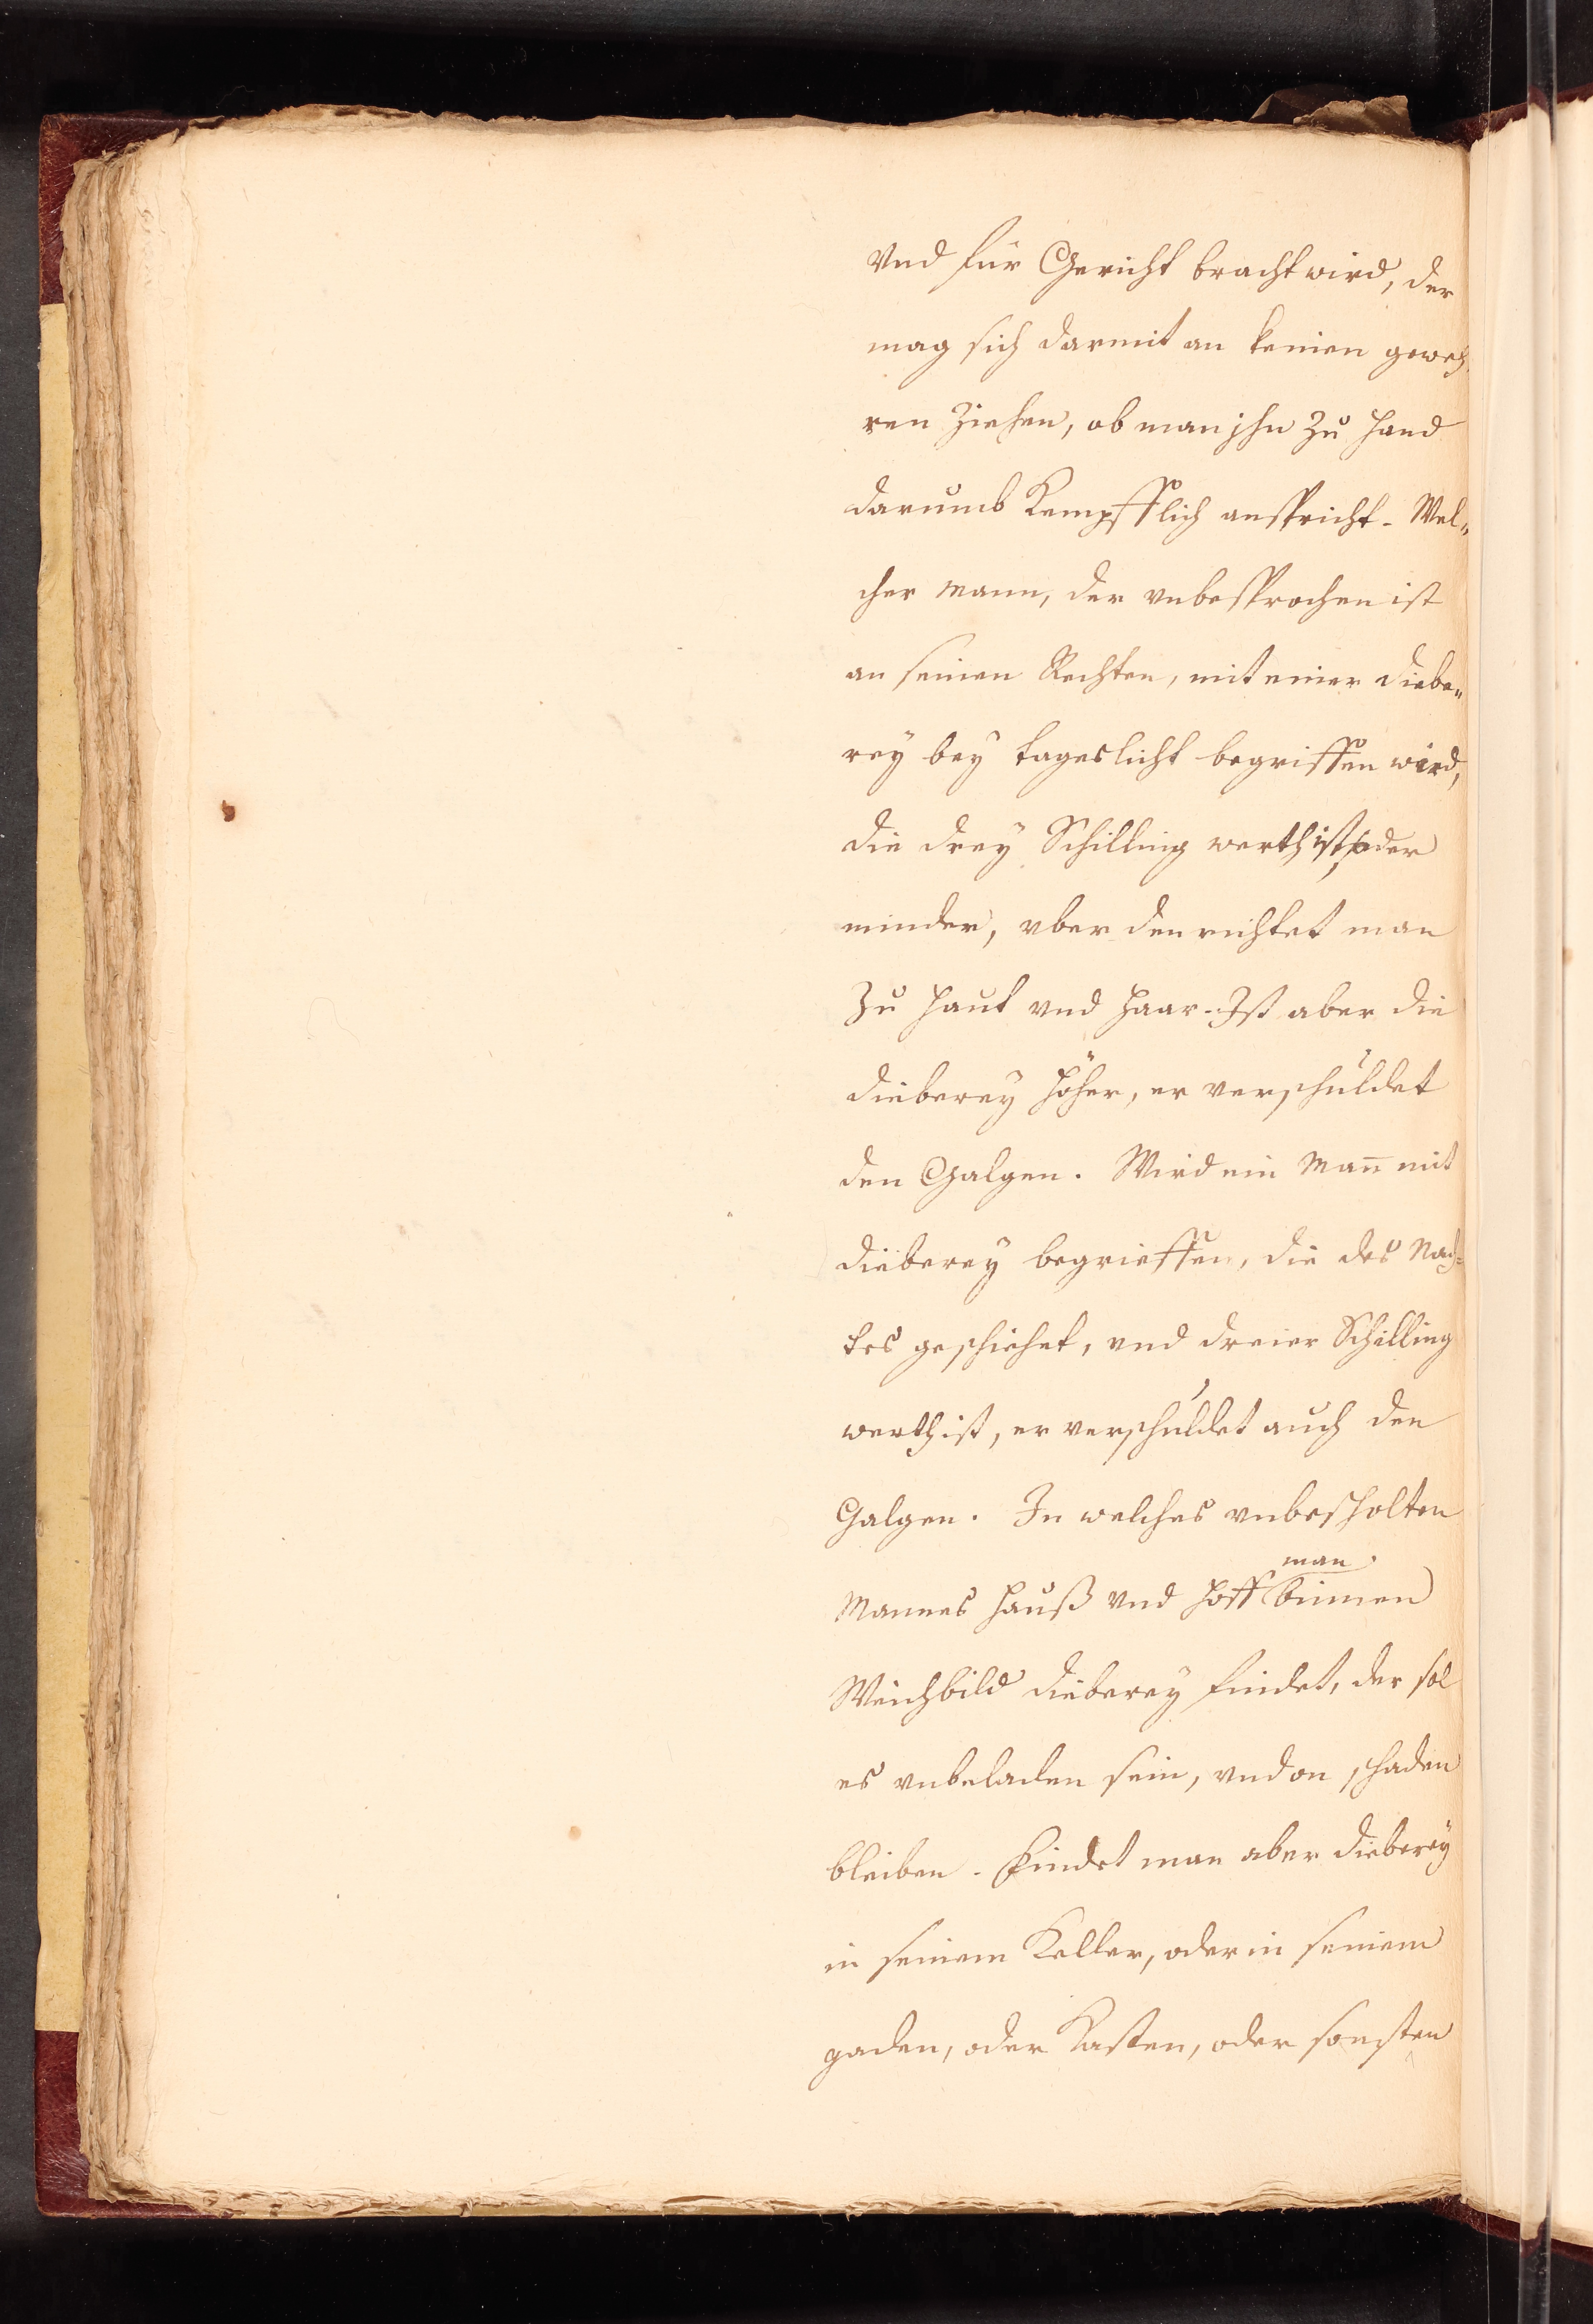 Vnd für Gericht bracht wird, der
mag sich darmit an keinen geweh-
ren Ziehen, ob man jhn Zu Hand
darumb Kempfflich anspricht. Wel„
cher Mann, der vnbesprochen ist
an seinen Rechten, mit einer Diebe„
rey bey tageslicht begriffen wird,
die drey Schilling werth ist, oder
minder, vber den richtet man
Zu Haut vnd Haar. Ist aber die
dieberey höher, er verschuldet
den Galgen. Wird ein Mañ mit
dieberey begrieffen, die des Nach=
tes geschiehet, vnd dreier Schilling
werth ist, er verschuldet auch den
Galgen. In welches vnbescholten
Mannes Hauß vnd Hoff man binnen
Weichbild dieberey findet, der sol
es vnbeladen sein, vnd on schaden
bleiben. Findet man aber dieberey
in seinem Keller, oder in seinem
gaden, oder Kasten, oder sonsten